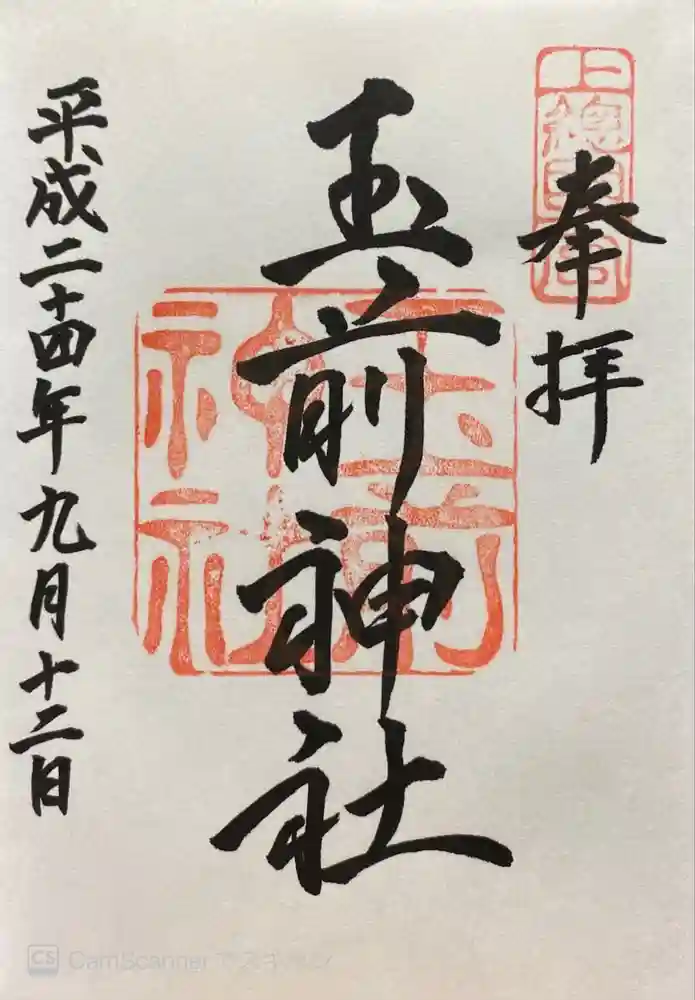 奉拝
上総国一宮
玉前神社
玉前神社
平成二十四年九月十二日
CS CamScanner でスキャン